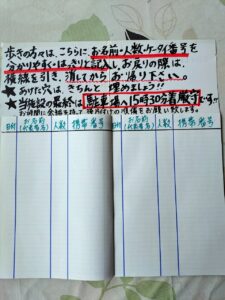 歩きの方々は、こちらにお名前・人数・ケータイ番号を
分かりやすく・はっきりと記入し、お戻りの際は、
横線を引き、消してからお帰り下さい。
★あけた穴は、きちんと埋めましょう!!
★当施設の最終は、駐車場へ15時30分着厳守です!!
お時間に余裕を持って後片付けの準備をお願い致します。
日付 お名前(代表者名) 人数 携帯番号 日付 お名前(代表者名) 人数 携帯番号